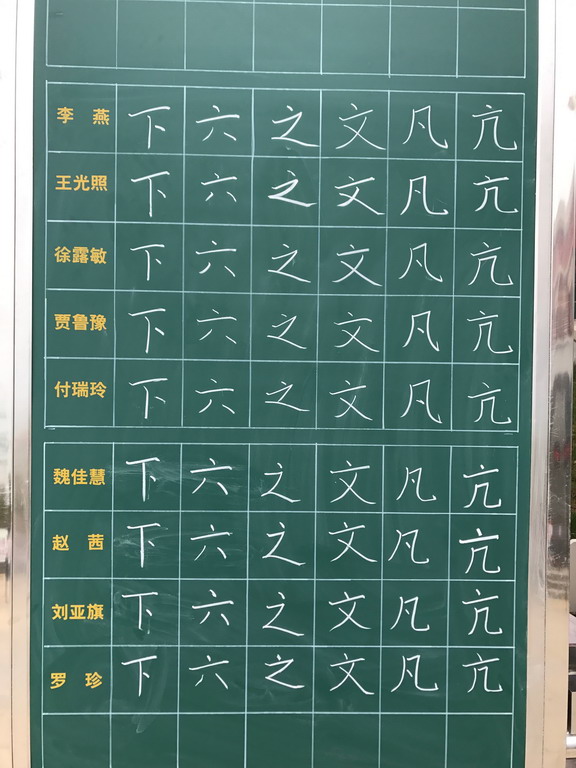 李燕 下六之文凡亢
王光照 下六之文凡亢
徐露敏 下六之文凡亢
贾鲁豫 下六之文凡亢
付瑞玲 下六之文凡亢
魏佳慧 下六之文凡亢
赵茜 下六之文凡亢
刘亚旗 下六之文凡亢
罗珍 下六之文凡亢